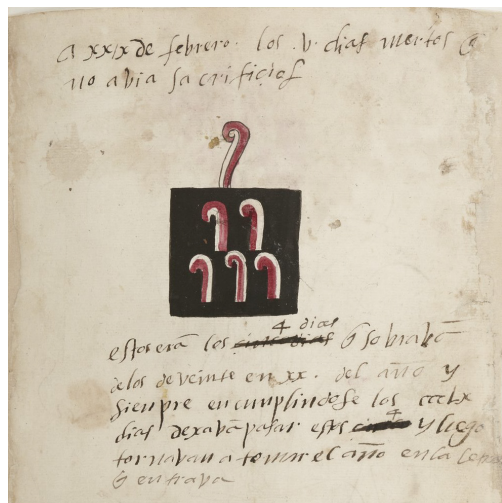 a xxix de febrero. los .v. dias muertos q̃
no avia sacrifiçios
4 dias
estos erã los çinco dias q̃ sobravã
de los de veinte en xx. del año y
sienpre en cunpliendose los ccclx
dias dexavã pasar estos 4 y luego
tornavan a tomar el año en la
q̃ entrava